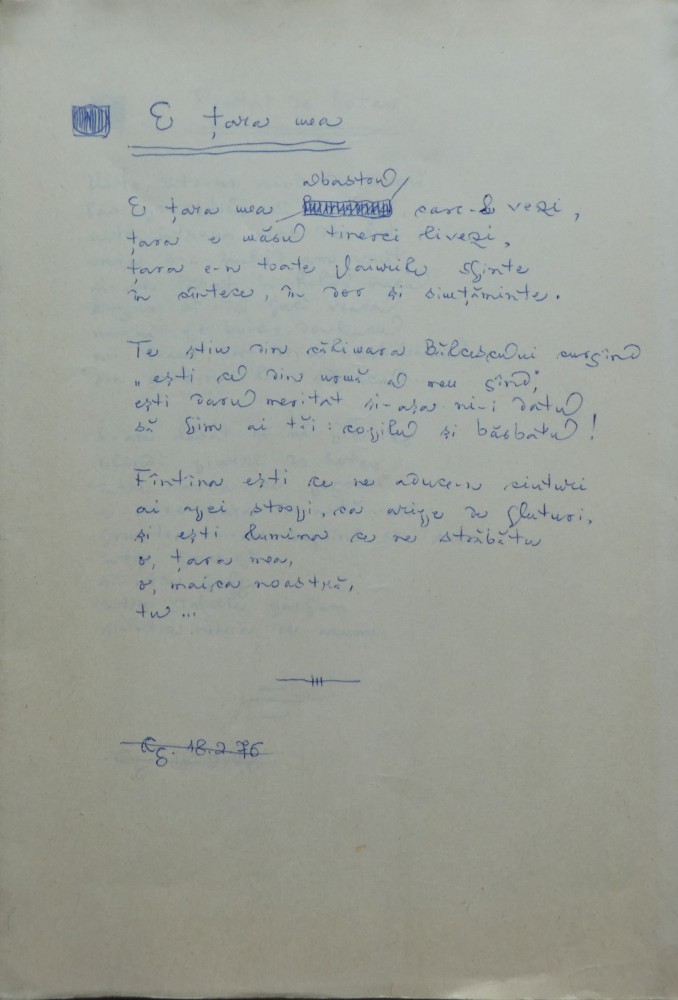 E țara mea
albastru
E țara mea care-l vezi,
țara e măsu tinerei livezi,
țara e-n toate sfinte
în cîntece, în dor și simțăminte.
Te știu din călimara Bălcescului curgînd
„ești cel din urmă al meu gînd",
ești darul meritat și-așa ni-i datul
să fim ai tăi: copilul și bărbatul!
Fîntîna ești ce ne aduce-n cinturi
ai apei stropi, ca aripe de fluturi,
și ești lumina ce ne străbătu
o, țara mea,
o, maica noastră,
tu...
18.2.76